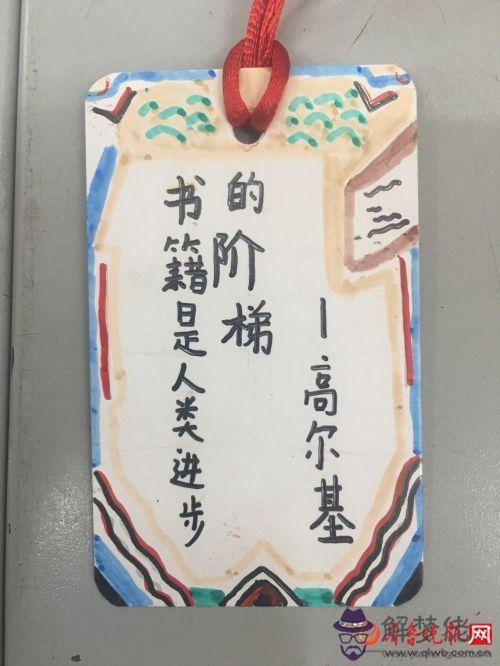 书籍是人类进步
的阶梯
—高尔基
解梦佬
www.qlwb.com.cn